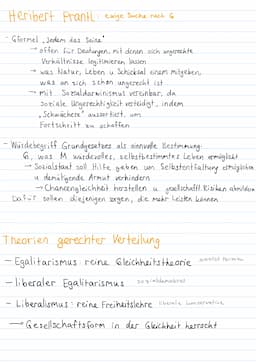 Heribert Prantl: ewige Suche nach G
- Gformel „Jedem das Seine"
→ offen für Deutungen, mit denen sich ungerechte
Verhältnisse legitimieren lassen
→ was Natur, Leben u Schicksal einem mitgeben,
was an sich schon ungerecht ist
→ mit Sozialdarwinismus vereinbar, da
soziale Ungerechtigkeit verteidigt, indem
„Schwächere" aussortiert, um
Fortschritt zu schaffen
- Würdebegriff Grundgesetzes als sinnvolle Bestimmung:
G, was M würdevolles, selbstbestimmtes Leben ermöglicht
→ Sozialstaat soll Hilfe geben um Selbstentfaltung ermöglichen
u demütigende Armut verhindern
→ Chancengleichheit herstellen u gesellschaftl. Risiken abmildern
Dafür sollen diejenigen sorgen, die mehr leisten können
Theorien gerechter Verteilung
- Egalitarismus: reine Gleichheitstheorie
- liberaler Egalitarismus sozialdemokrat
- Liberalismus: reine Freiheitslehre liberale
→ Gesellschaftsform in der Gleichheit herrscht